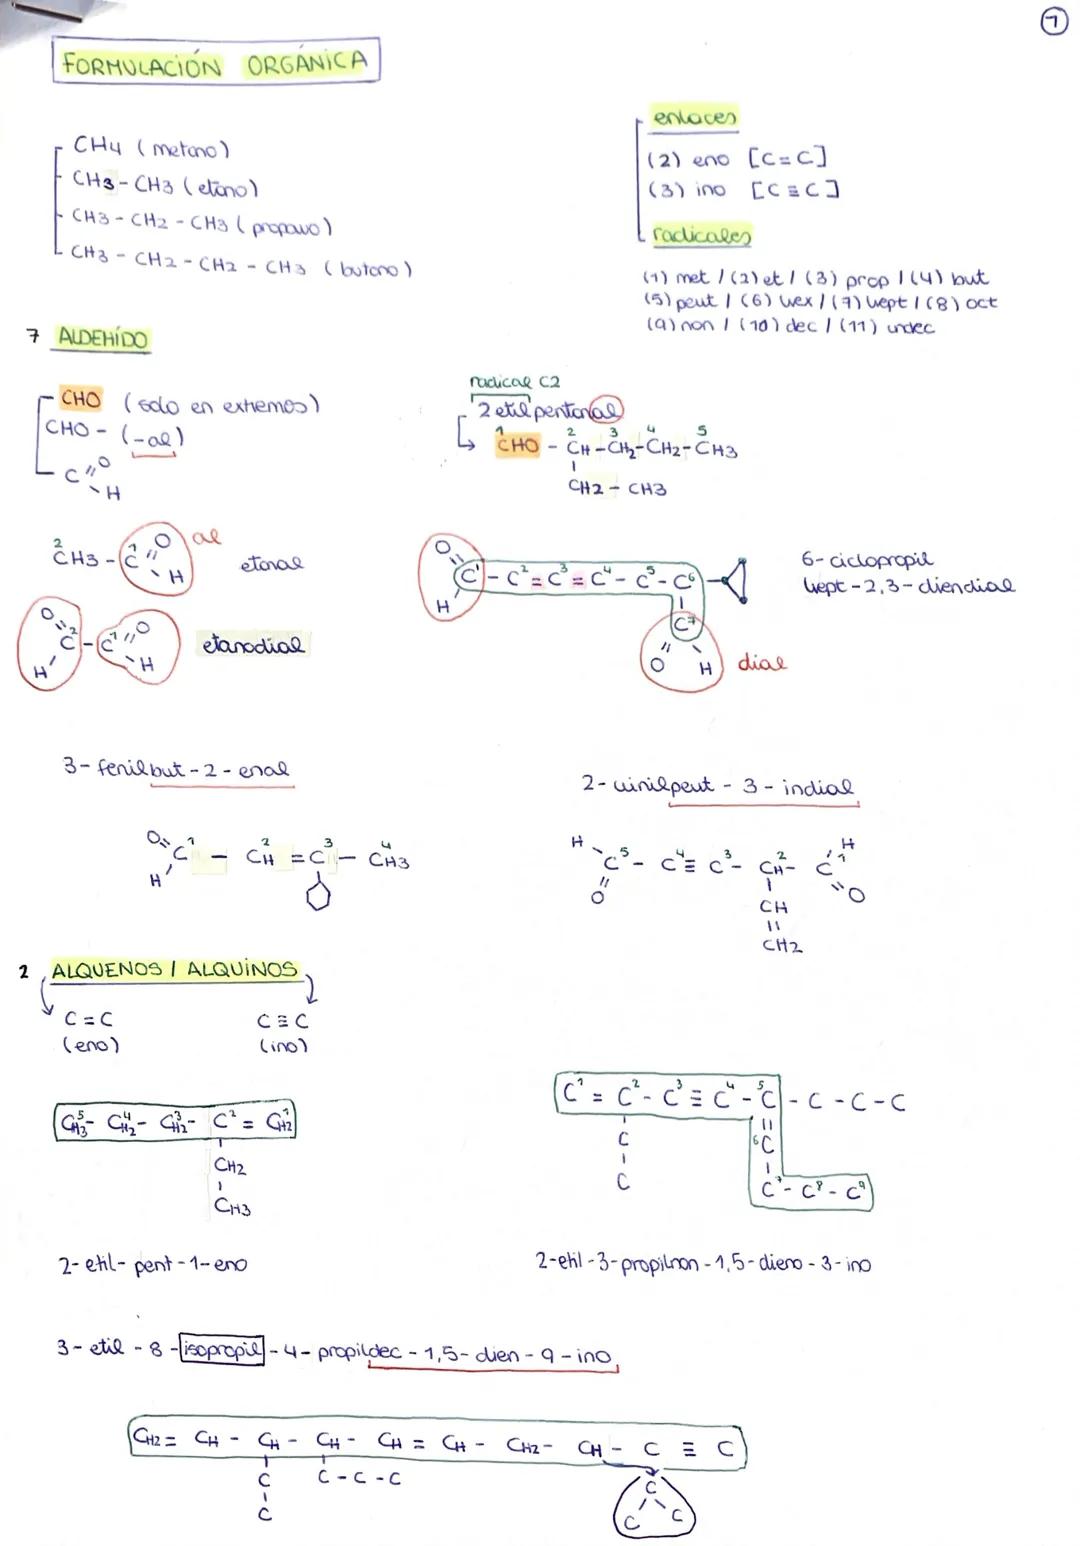 7
FORMULACIÓN ORGÁNICA
CH4 (metano)
CH3 - CH3 (etano)
CH3 - CH2 - CH3 (propano)
CH3 - CH2 - CH2 - CH3 (butano)
enlaces
(2) eno [C=C]
(3) ino [C≡C]
radicales
(1) met / (2) et / (3) prop / (4) but
(5) pent / (6) hex / (7) hept / (8) oct
(9) non / (10) dec / (11) undec
7 ALDEHÍDO
CHO (solo en extremos)
CHO - (-al)
C=O
-H
radical C2
2 etil pentanal
1 2 3 4 5
CHO - CH - CH2 - CH2 - CH3
CH2 - CH3
2 1
CH3 - C =O al
-H
etanal
O=C2 - C1=O
H H
etanodial
O=C1 - C2 = C3 = C4 - C5 - C6
H
C7
O H dial
6- ciclopropil
hept - 2,3 - diendial
3- fenilbut - 2 - enal
O=C1 - CH2 = C3 - CH34
H
2- vinilpent - 3 - indial
H H
C5 - C4 ≡ C3 - CH2 - C1
O O
CH
=
CH2
2 ALQUENOS / ALQUINOS
C=C
(eno)
C≡C
(ino)
CH35 - CH24 - CH23 - C2 = CH21
CH2
CH3
2- etil- pent - 1- eno
C1 = C2 - C3 ≡ C4 - C5 - C - C - C
C
C
6C
C7 - C8 - C9
2-etil - 3-propilnon - 1,5- dieno - 3- ino
3- etil - 8 - isopropil - 4 - propildec - 1,5- dien - 9 - ino
CH2 = CH - CH - CH - CH = CH - CH2 - CH - C ≡ C
C
C
C - C - C
C
C C